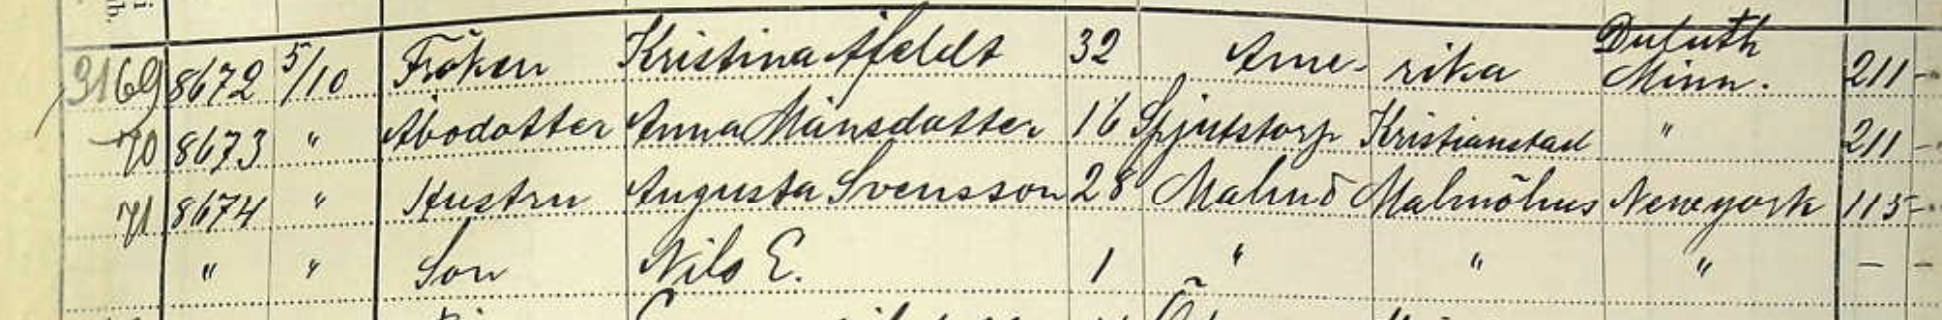 Duluth
3169 8672 5/10 Fröken Kristina Afeldt 32 Ame- rika Minn. 211 -
70 8673 " Åbodotter Anna Månsdotter 16 Spjutstorp Kristianstad " 211 -
71 8674 " Hustru Augusta Svensson 28 Malmö Malmöhus Newyork 115 -
" " Son Nils E. 1 " " " - -